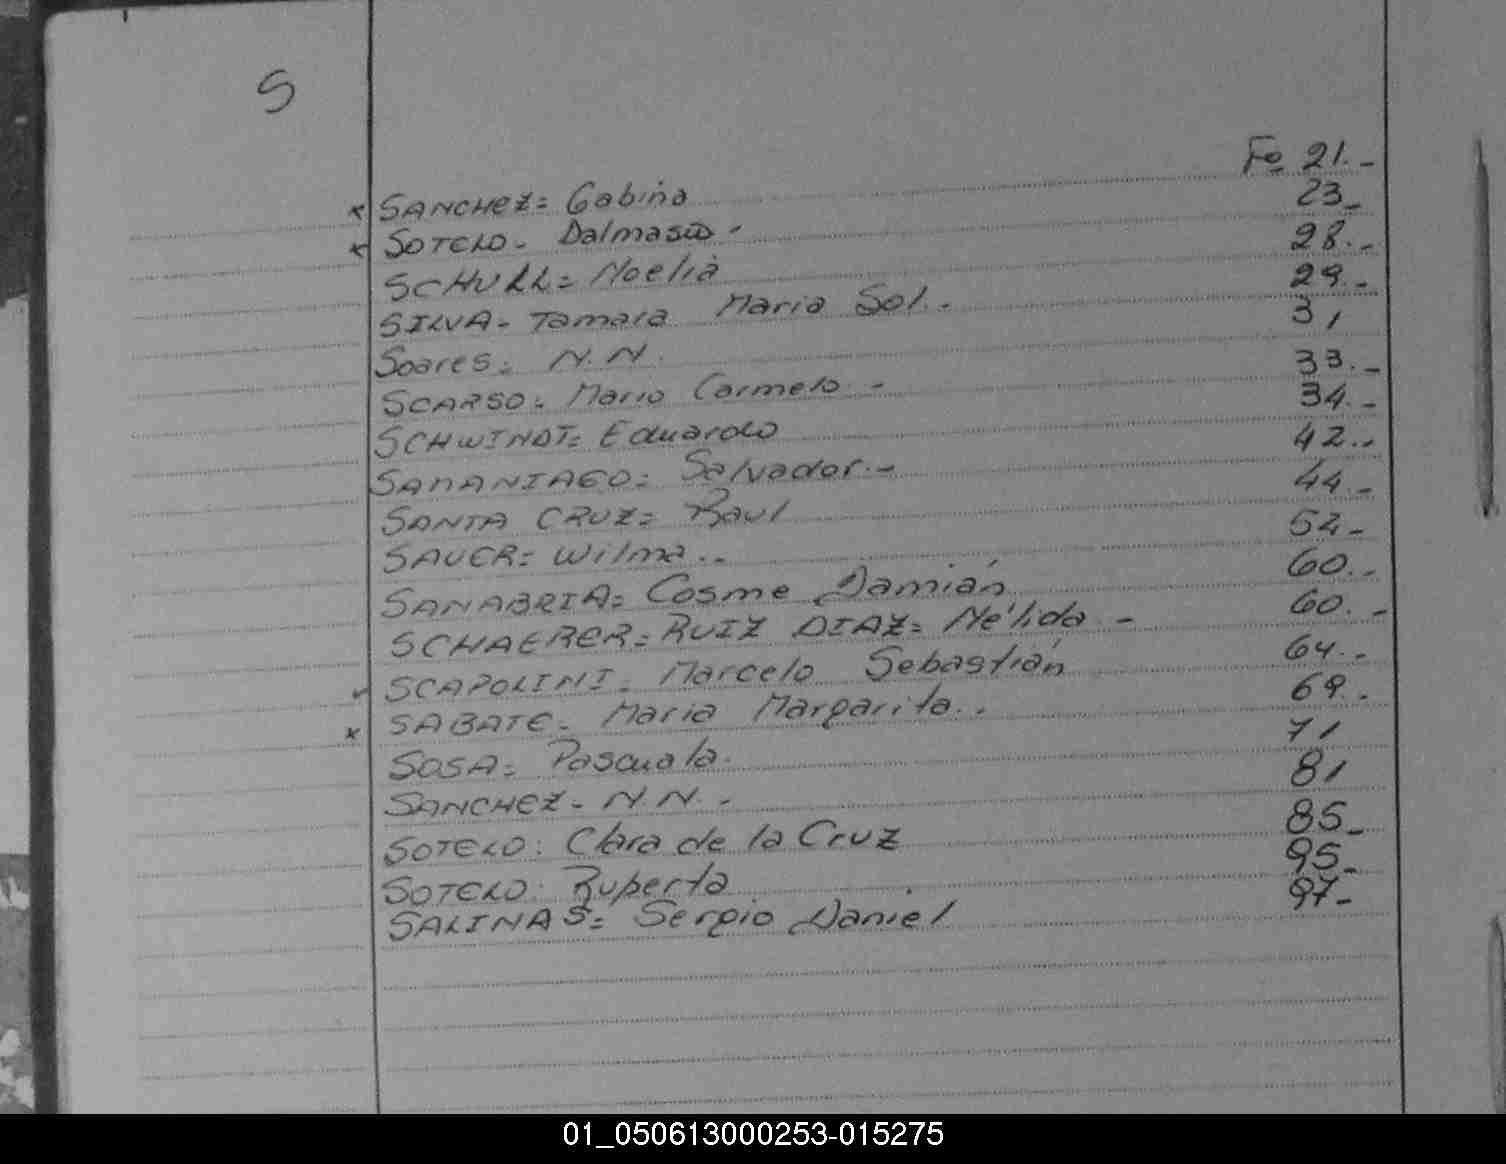 S
SANCHEZ= Gabina Fo 21.-
SOTELO- Dalmasio- 23-
SCHULL= Noelia 28.-
SILVA- Tamara Maria Sol.- 29.-
Soares= N.N. 31
SCARSO- Mario Carmelo- 33.-
SCHWINDT= Eduardo 34.-
SAMANIAGO= Salvador.- 42.-
SANTA CRUZ= Raul 44.-
SAUER= Wilma.- 52-
SANABRIA= Cosme Damián 60.-
SCHAERER= RUIZ DIAZ= Nélida- 60.-
SCAPOLINI- Marcelo Sebastián 64.-
SABATE- Maria Margarita.- 69.-
SOSA= Pascuala. 71
SANCHEZ- N.N.- 81
SOTELO: Clara de la Cruz 85-
SOTELO: Ruperta 95-
SALINAS= Sergio Daniel 97-
01_050613000253-015275